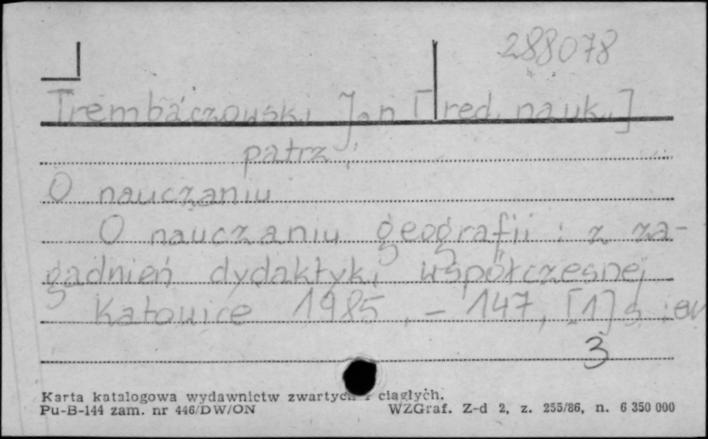 288078
Trembaczowski Jan [red. nauk.]
patrz:
O nauczaniu
O nauczaniu geografii : z za-
gadnień dydaktyki współczesnej
Katowice 1985. - 147, [1] s :
3
Karta katalogowa wydawnictw zwartych i ciągłych.
Pu-B-144 zam. nr 446/DW/ON WZGraf. Z-d 2, z. 255/86, n. 6 350 000